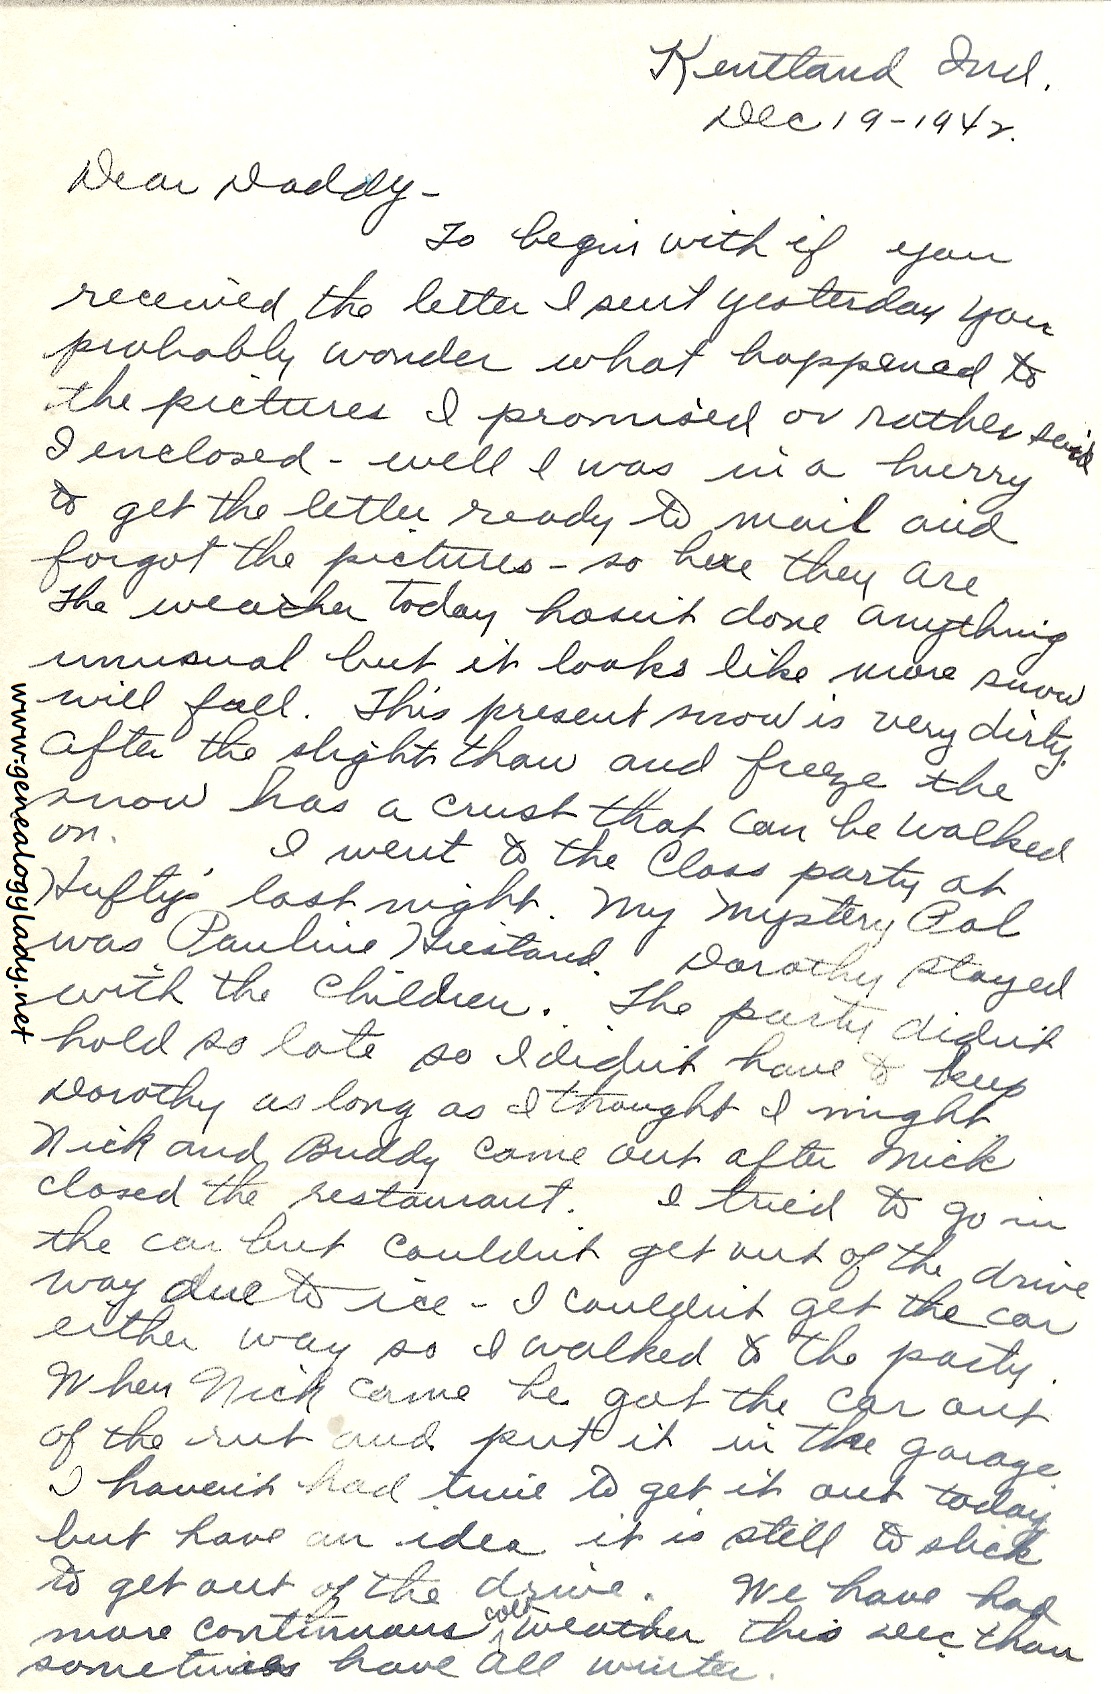 Kentland Ind.
Dec 19-1942.
Dear Daddy-
To begin with if you
received the letter I sent yesterday you
probably wonder what happened to
the pictures I promised or rather said
I enclosed - well I was in a hurry
to get the letter ready to mail and
forgot the pictures - so here they are.
The weather today hasn't done anything
unusual but it looks like more snow
will fall. This present snow is very dirty.
After the slight thaw and freeze the
snow has a crust that can be walked
on. I went to the Class party at
Hufty's last night. My Mystery Pal
was Pauline Hiestand. Dorothy stayed
with the children. The party didn't
hold so late so I didn't have to keep
Dorothy as long as I thought I might.
Nick and Buddy came out after Nick
closed the restaurant. I tried to go in
the car but couldn't get out of the drive
way due to ice - I couldn't get the car
either way so I walked to the party.
When Nick came he got the car out
of the rut and put it in the garage.
I haven't had time to get it out today
but have an idea it is still to slick
to get out of the drive. We have had
more continuous cold weather this Dec than
sometimes have all winter.
www.genealogylady.net